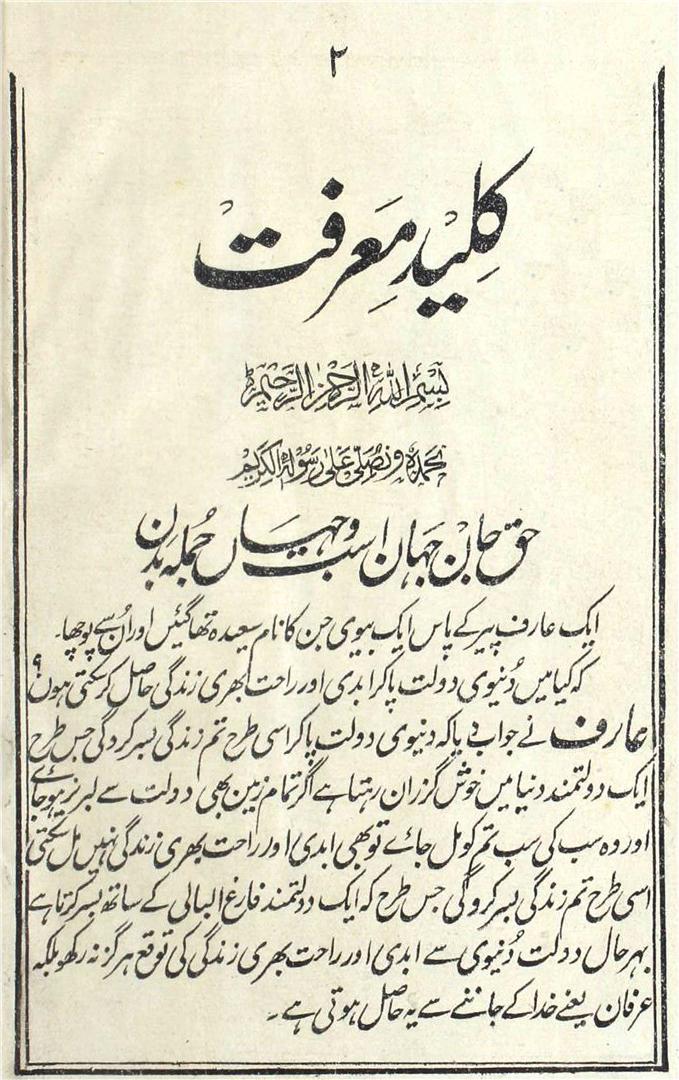 ۲
کلید معرفت
بسم اللہ الرحمن الرحیم
نحمدہ ونصلی علی رسولہ الکریم
حق جان جہان است وجہاں جملہ بدن
ایک عارف پیر کے پاس ایک بیوی جن کا نام سعیدہ تھا گئیں اور اُن سے پوچھا۔
کہ کیا میں دُنیوی دولت پاکر ابدی اور راحت بھری زندگی حاصل کر سکتی ہوں؟
عارف نے جواب دیا کہ دنیوی دولت پاکر اسی طرح تم زندگی بسر کروگی جس طرح
ایک دولتمند دنیا میں خوش گزران رہتا ہے اگر تمام زمین بھی دولت سے لبریز ہوجائے
اور وہ سب کی سب تم کو مل جائے تو بھی ابدی اور راحت بھری زندگی نہیں مل سکتی
اسی طرح تم زندگی بسر کروگی جس طرح کہ ایک دولتمند فارغ البالی کے ساتھ بسر کرتا ہے
بہرحال دولت دُنیوی سے ابدی اور راحت بھری زندگی کی توقع ہرگز نہ رکھو بلکہ
عرفان یعنے خدا کے جاننے سے یہ حاصل ہوتی ہے۔